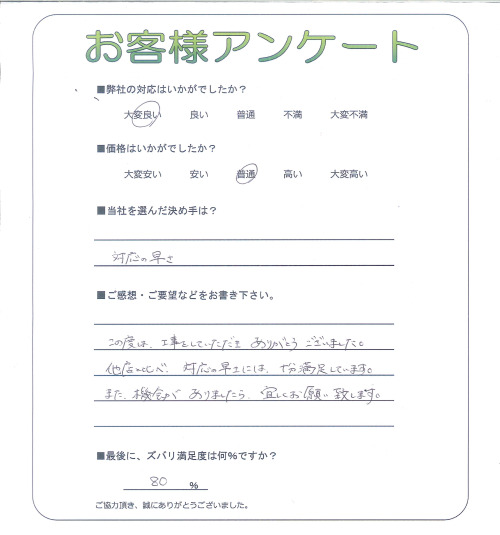 お客様アンケート
■弊社の対応はいかがでしたか？
大変良い 良い 普通 不満 大変不満
■価格はいかがでしたか？
大変安い 安い 普通 高い 大変高い
■当社を選んだ決め手は？
対応の早さ
■ご感想・ご要望などをお書き下さい。
この度は、工事をしていただき ありがとう ございました。
他店と比べ、対応の早さには、十分満足しています。
また、機会が ありましたら、宜しくお願い致します。
■最後に、ズバリ満足度は何％ですか？
80 ％
ご協力頂き、誠にありがとうございました。